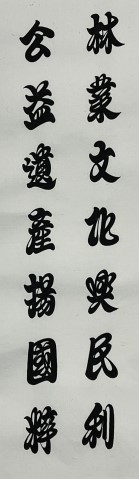 林業文化興民利
公益遺產揚國粹